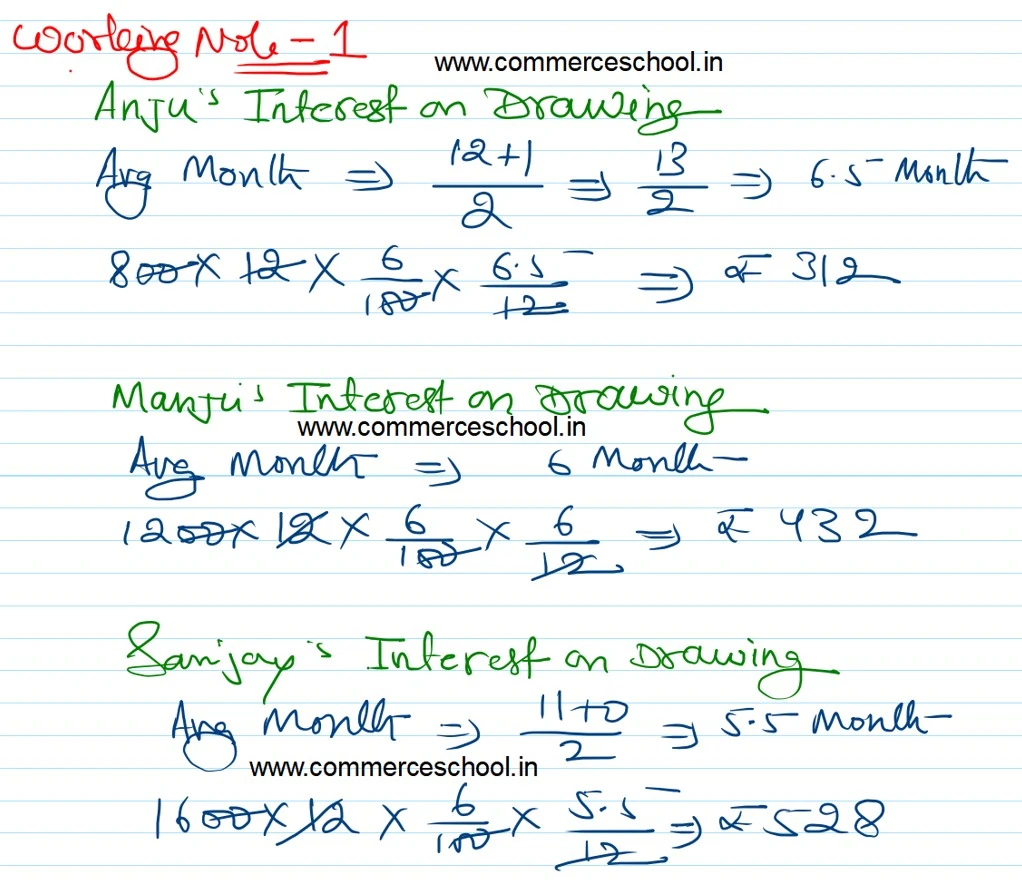 Working Note - 1
www.commerceschool.in
Anju's Interest on Drawing
Avg Month ⇒ 12+1/2 ⇒ 13/2 ⇒ 6.5 Month
800 × 12 × 6/100 × 6.5/12 ⇒ ₹ 312
Manju's Interest on Drawing
www.commerceschool.in
Avg Month ⇒ 6 Month
1200 × 12 × 6/100 × 6/12 ⇒ ₹ 432
Sanjay's Interest on Drawing
Avg Month ⇒ 11+0/2 ⇒ 5.5 Month
www.commerceschool.in
1600 × 12 × 6/100 × 5.5/12 ⇒ ₹ 528